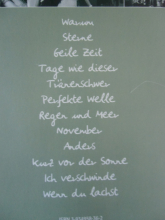 Warum
Sterne
Geile Zeit
Tage wie dieser
Tränenschwer
Perfekte Welle
Regen und Meer
November
Anders
Kurz vor der Sonne
Ich verschwinde
Wenn du lachst